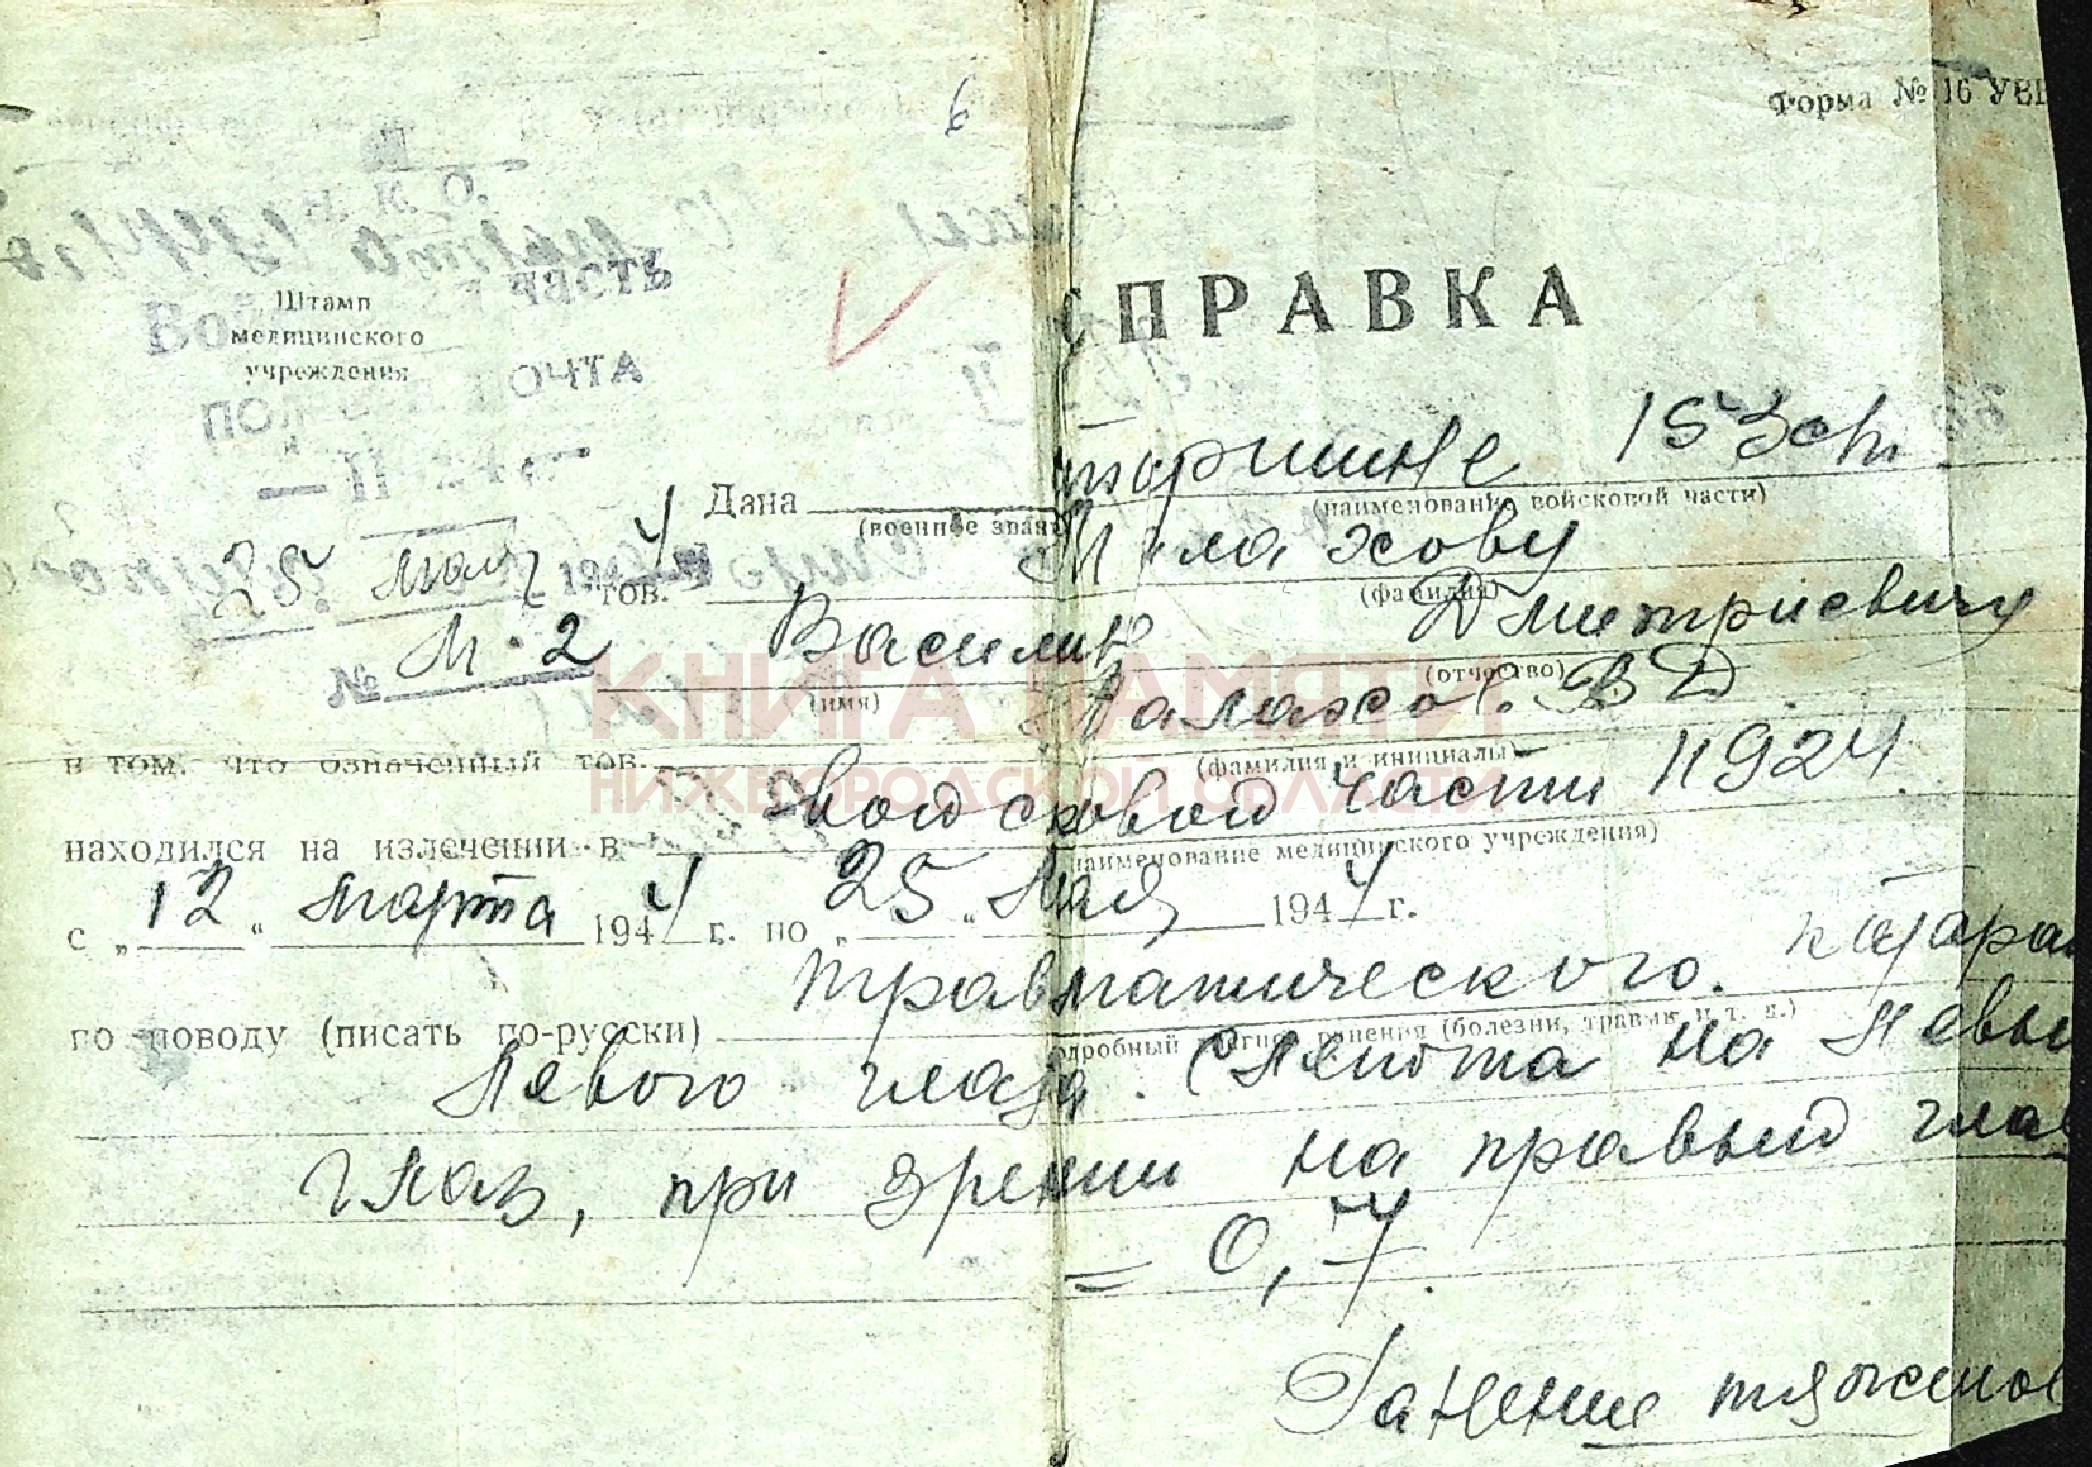 6
Форма № 16 УВ
Н. К. О.
Штамп
медицинского
учреждения
ЧАСТЬ
СПРАВКА
Дана старшине 153
(военное звание) (наименование войсковой части)
25 мая 1944
тов. Малахову
(фамилия)
№ М-2
Василию Дмитриевичу
(имя) (отчество)
в том, что означенный тов. Малахов В Д
(фамилия и инициалы)
находился на излечении в войсковой части 11924
(наименование медицинского учреждения)
с „12“ марта 1944 г. по „25“ Мая 1944 г.
по поводу (писать по-русски) травматического
подробный диагноз ранения (болезни, травмы и т. д.)
Левого глаза. Слепота на левы
глаз, при зрении на правый глаз
= 0,7.
Ранение тяжелое
КНИГА ПАМЯТИ
НИЖЕГОРОДСКОЙ ОБЛАСТИ